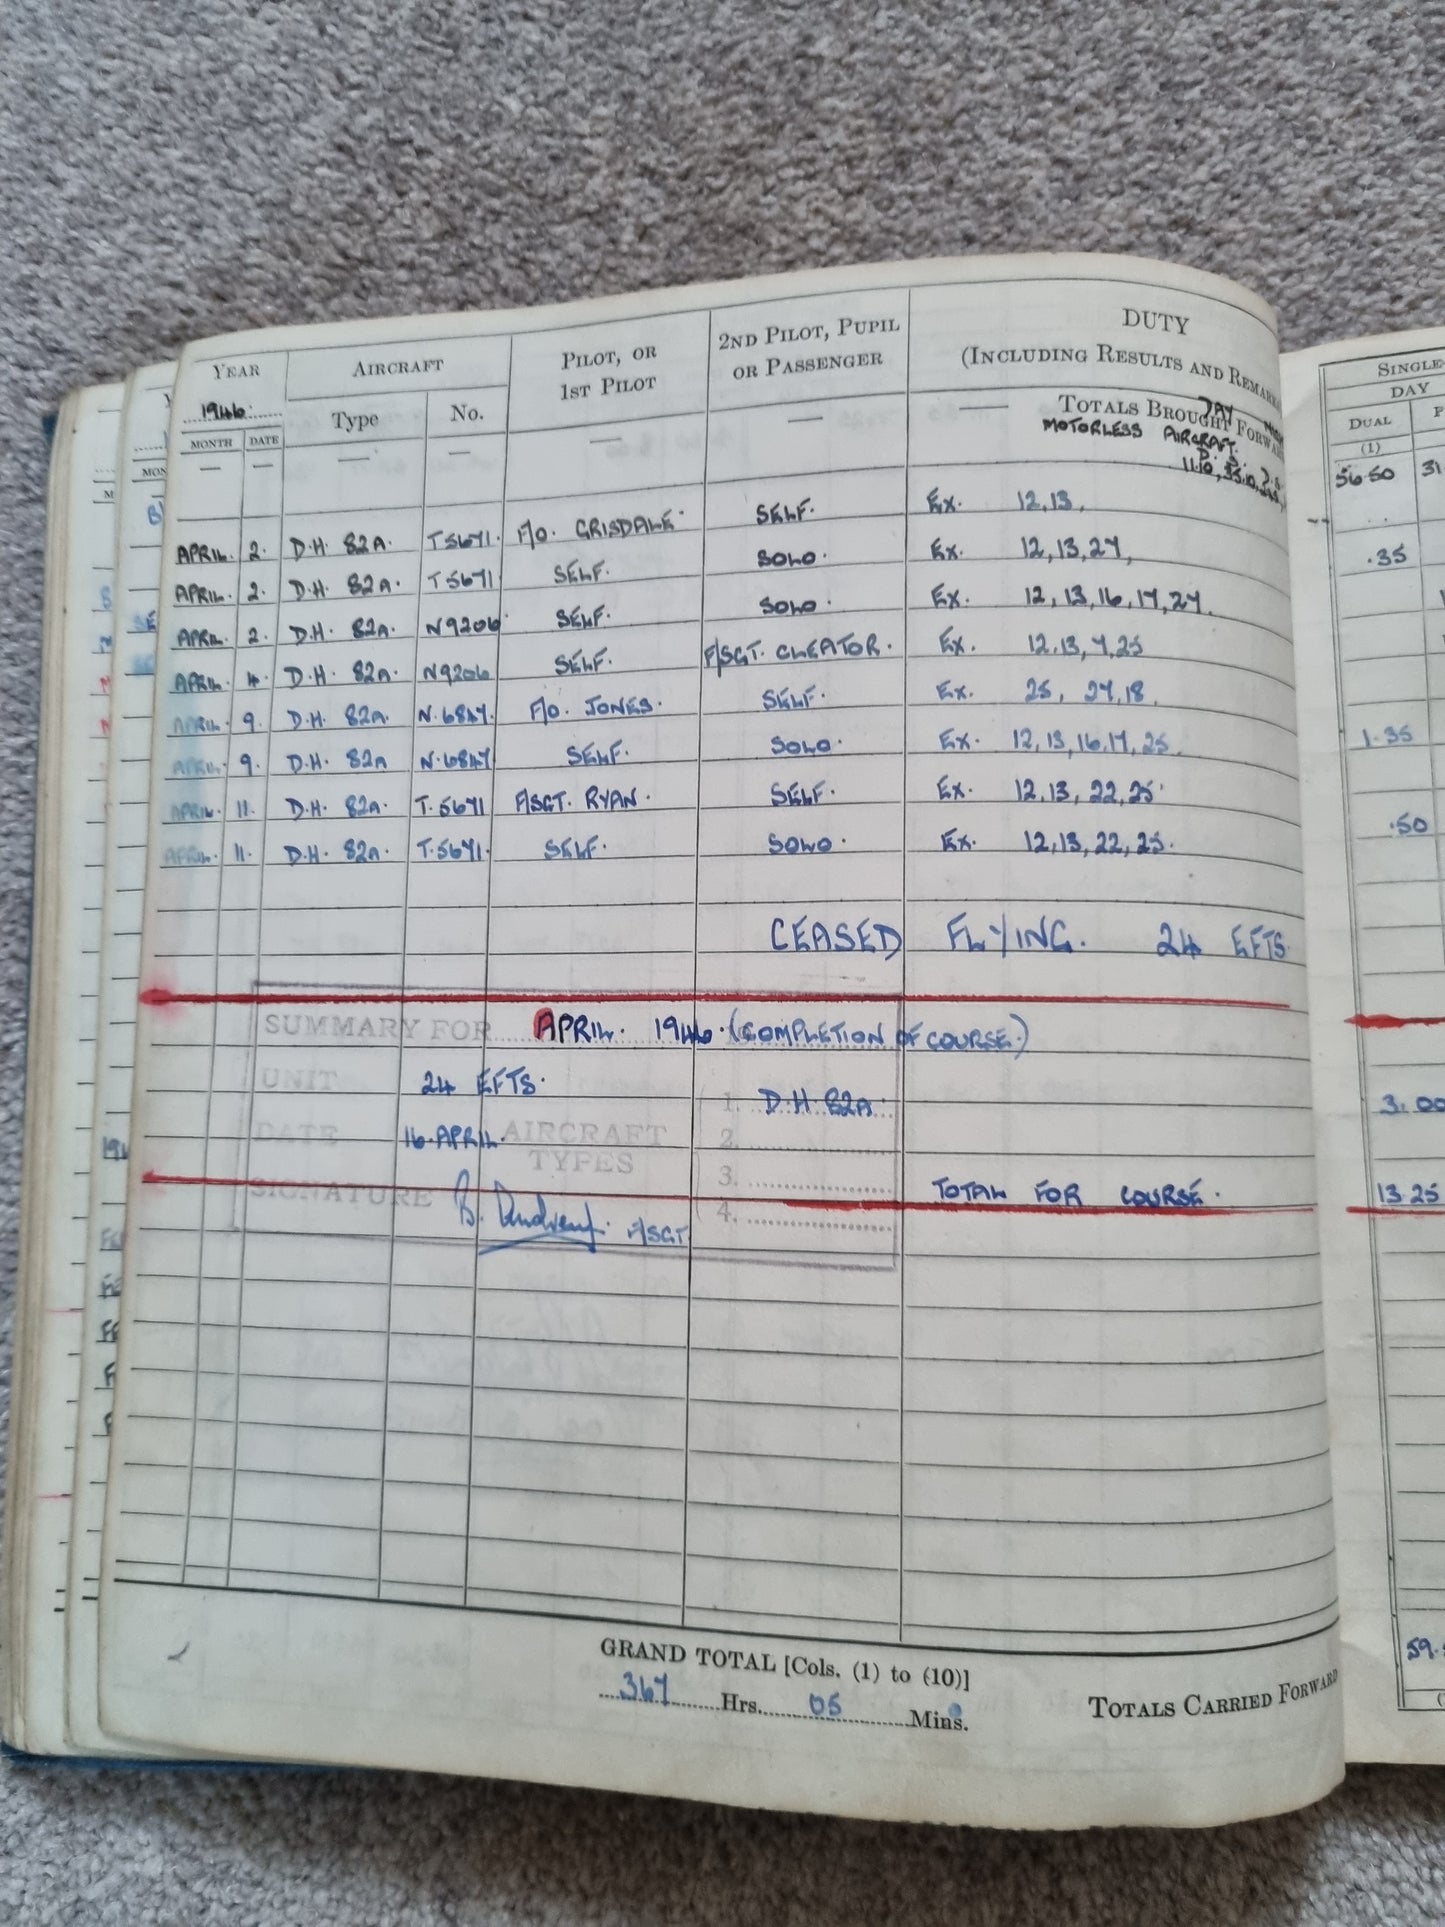 YEAR AIRCRAFT PILOT, OR 1ST PILOT 2ND PILOT, PUPIL OR PASSENGER DUTY (INCLUDING RESULTS AND REMARKS SINGLE-
1946. Type No. DAY
MONTH DATE — — — — — TOTALS BROUGHT FORWARD DUAL
— — MOTORLESS AIRCRAFT. DAY (1)
56.50 31
APRIL. 2. D.H. 82A. T5671. F/O. GRISDALE. SELF. Ex. 12,13, .35
APRIL. 2. D.H. 82A. T5671 SELF. SOLO. Ex. 12,13,27,
APRIL. 2. D.H. 82A. N9206 SELF. SOLO. Ex. 12,13,16,17,27.
APRIL. 4. D.H. 82A. N9206 SELF. F/SGT. CLEATOR. Ex. 12.13,7,25
APRIL. 9. D.H. 82A. N.6847. F/O. JONES. SELF. Ex. 25, 27,18. 1.35
APRIL. 9. D.H. 82A N.6847 SELF. SOLO. Ex. 12,13,16,17,25.
APRIL. 11. D.H. 82A T.5671 F/SGT. RYAN. SELF. Ex. 12,13,22,25. .50
APRIL. 11. D.H. 82A. T.5671. SELF. SOLO. Ex. 12,13,22,25.
CEASED FLYING. 24 EFTS.
SUMMARY FOR APRIL. 1946. (COMPLETION OF COURSE.)
UNIT 24 EFTS. 1. D.H. 82A. 3.00
DATE 16.APRIL. AIRCRAFT TYPES 2.
3.
SIGNATURE B. F/SGT 4. TOTAL FOR COURSE. 13.25
GRAND TOTAL [Cols. (1) to (10)]
367 Hrs. 05 Mins. TOTALS CARRIED FORWARD 59.